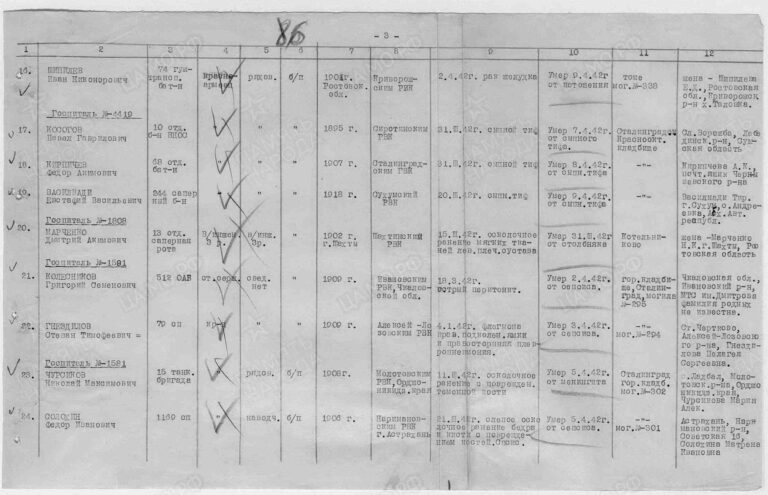 86
- 3 -
1 2 3 4 5 6 7 8 9 10 11 12
16.
ШИПИЛЕВ
Иван Никонорович
74 гуж-
трансп.
бат-н
красно-
армеец
рядов.
б/п
1901г.
Ростовск.
обл.
Криворож-
ским РВК
2.4.42г. рак желудка
Умер 9.4.42г
от истощения
тоже
мог.№-338
жена - Шипилева
Ростовская
обл., Криворожск.
Госпиталь №-4419
17.
КОСОГОВ
Павел Гаврилович
10 отд.
б-н ВНОС
"
"
"
1895 г.
Сиротинским
РВК
31.III.42г. сыпной тиф
Умер 7.4.42г.
от сыпного
тифа.
Сталинград
Красноокт.
кладбище
Сл.Ворожба, Лебе
динск.р-н, Сум-
ская область
18.
КИРПИЧЕВ
Федор Акимович
68 отд.
бат-н
"
"
"
1907 г.
Сталинград-
ским ГВК
31.III.42г. сыпной тиф
Умер 8.4.42г.
от сыпн.тифа
-"-
Кирпичева А.К.,
почт.ящик
19.
ВАСИЛИАДИ
Евстафий Васильевич
244 сапер
ный б-н
"
"
"
1918 г.
Сухумский
РВК
20.III.42г. сыпн.тиф
Умер 9.4.42г
от сыпн.тифа
-"-
Василиади
г.Сухум, с.Андре-
евка, Абх.Авт.
респуб.
Госпиталь №-1808
20.
МАРЧЕНКО
Дмитрий Акимович
13 отд.
саперная
рота
в/инжен.
3 р.
в/инж.
3р.
б/п
1902 г.
г.Шахты
Шахтинским
РВК
15.III.42г. осколочное
ранение мягких тка-
ней лев.плеч.сустава
Умер 31.III.42г
от столбняка
Котельни-
ково
жена -Марченко
Н.К.г.Шахты, Рос
товская область
Госпиталь №-1591
21.
КОЛЕСНИКОВ
Григорий Семенович
512 ОАБ
от.серж.
свед.
нет
"
1909 г.
Ивановским
РВК, Чкалов-
ской обл.
19.3.42г.
острый перитонит.
Умер 2.4.42г.
от сепсиса.
гор.кладби-
ще, Сталин-
град, могила
№-295
Чкаловская обл.,
Ивановский р-н,
МТС им.Димитрова
фамилия родных
не известна.
22.
ГНЕЗДИЛОВ
Степан Тимофеевич =
79 сп
кр-ц
"
"
1909 г.
Алексей -Ло-
зовским РВК
4.1.42г. флегмона
прав.подколен.ямки
и правосторонняя плев-
ропневмония.
Умер 3.4.42г
от сепсиса.
-"-
мог.№-294
Ст.Чертково,
Алексей-Лозовског
го р-на, Гнезди-
лова Пелагея
Сергеевна.
Госпиталь №-1581
23.
ЧУРСИКОВ
Николай Максимович
15 танк.
бригада
"
рядов.
б/п
1908г.
Молотовским
РВК, Орджо-
никидз.край
11.III.42г. осколочное
ранение с поврежден.
теменной кости
Умер 5.4.42г
от менингита
Сталинград
гор.кладб.
мог.№-302
Молотов-
ск.р-на, Орджо
никидз.край,
Мария
Алек.
24.
СОЛОХИН
Федор Иванович
1169 сп
"
наводч.
б/п
1906 г.
Наримановс-
ским РВК
г.Астрахань
21.III.42г. слепое оско
лочное ранение бедра
и кисти с поврежде-
нием костей.
Умер 5.4.42г.
от сепсиса.
-"-
мог.№-301
Астрахань, Нари
мановский р-н,
Советская 16,
Солохина Матрена
Ивановна